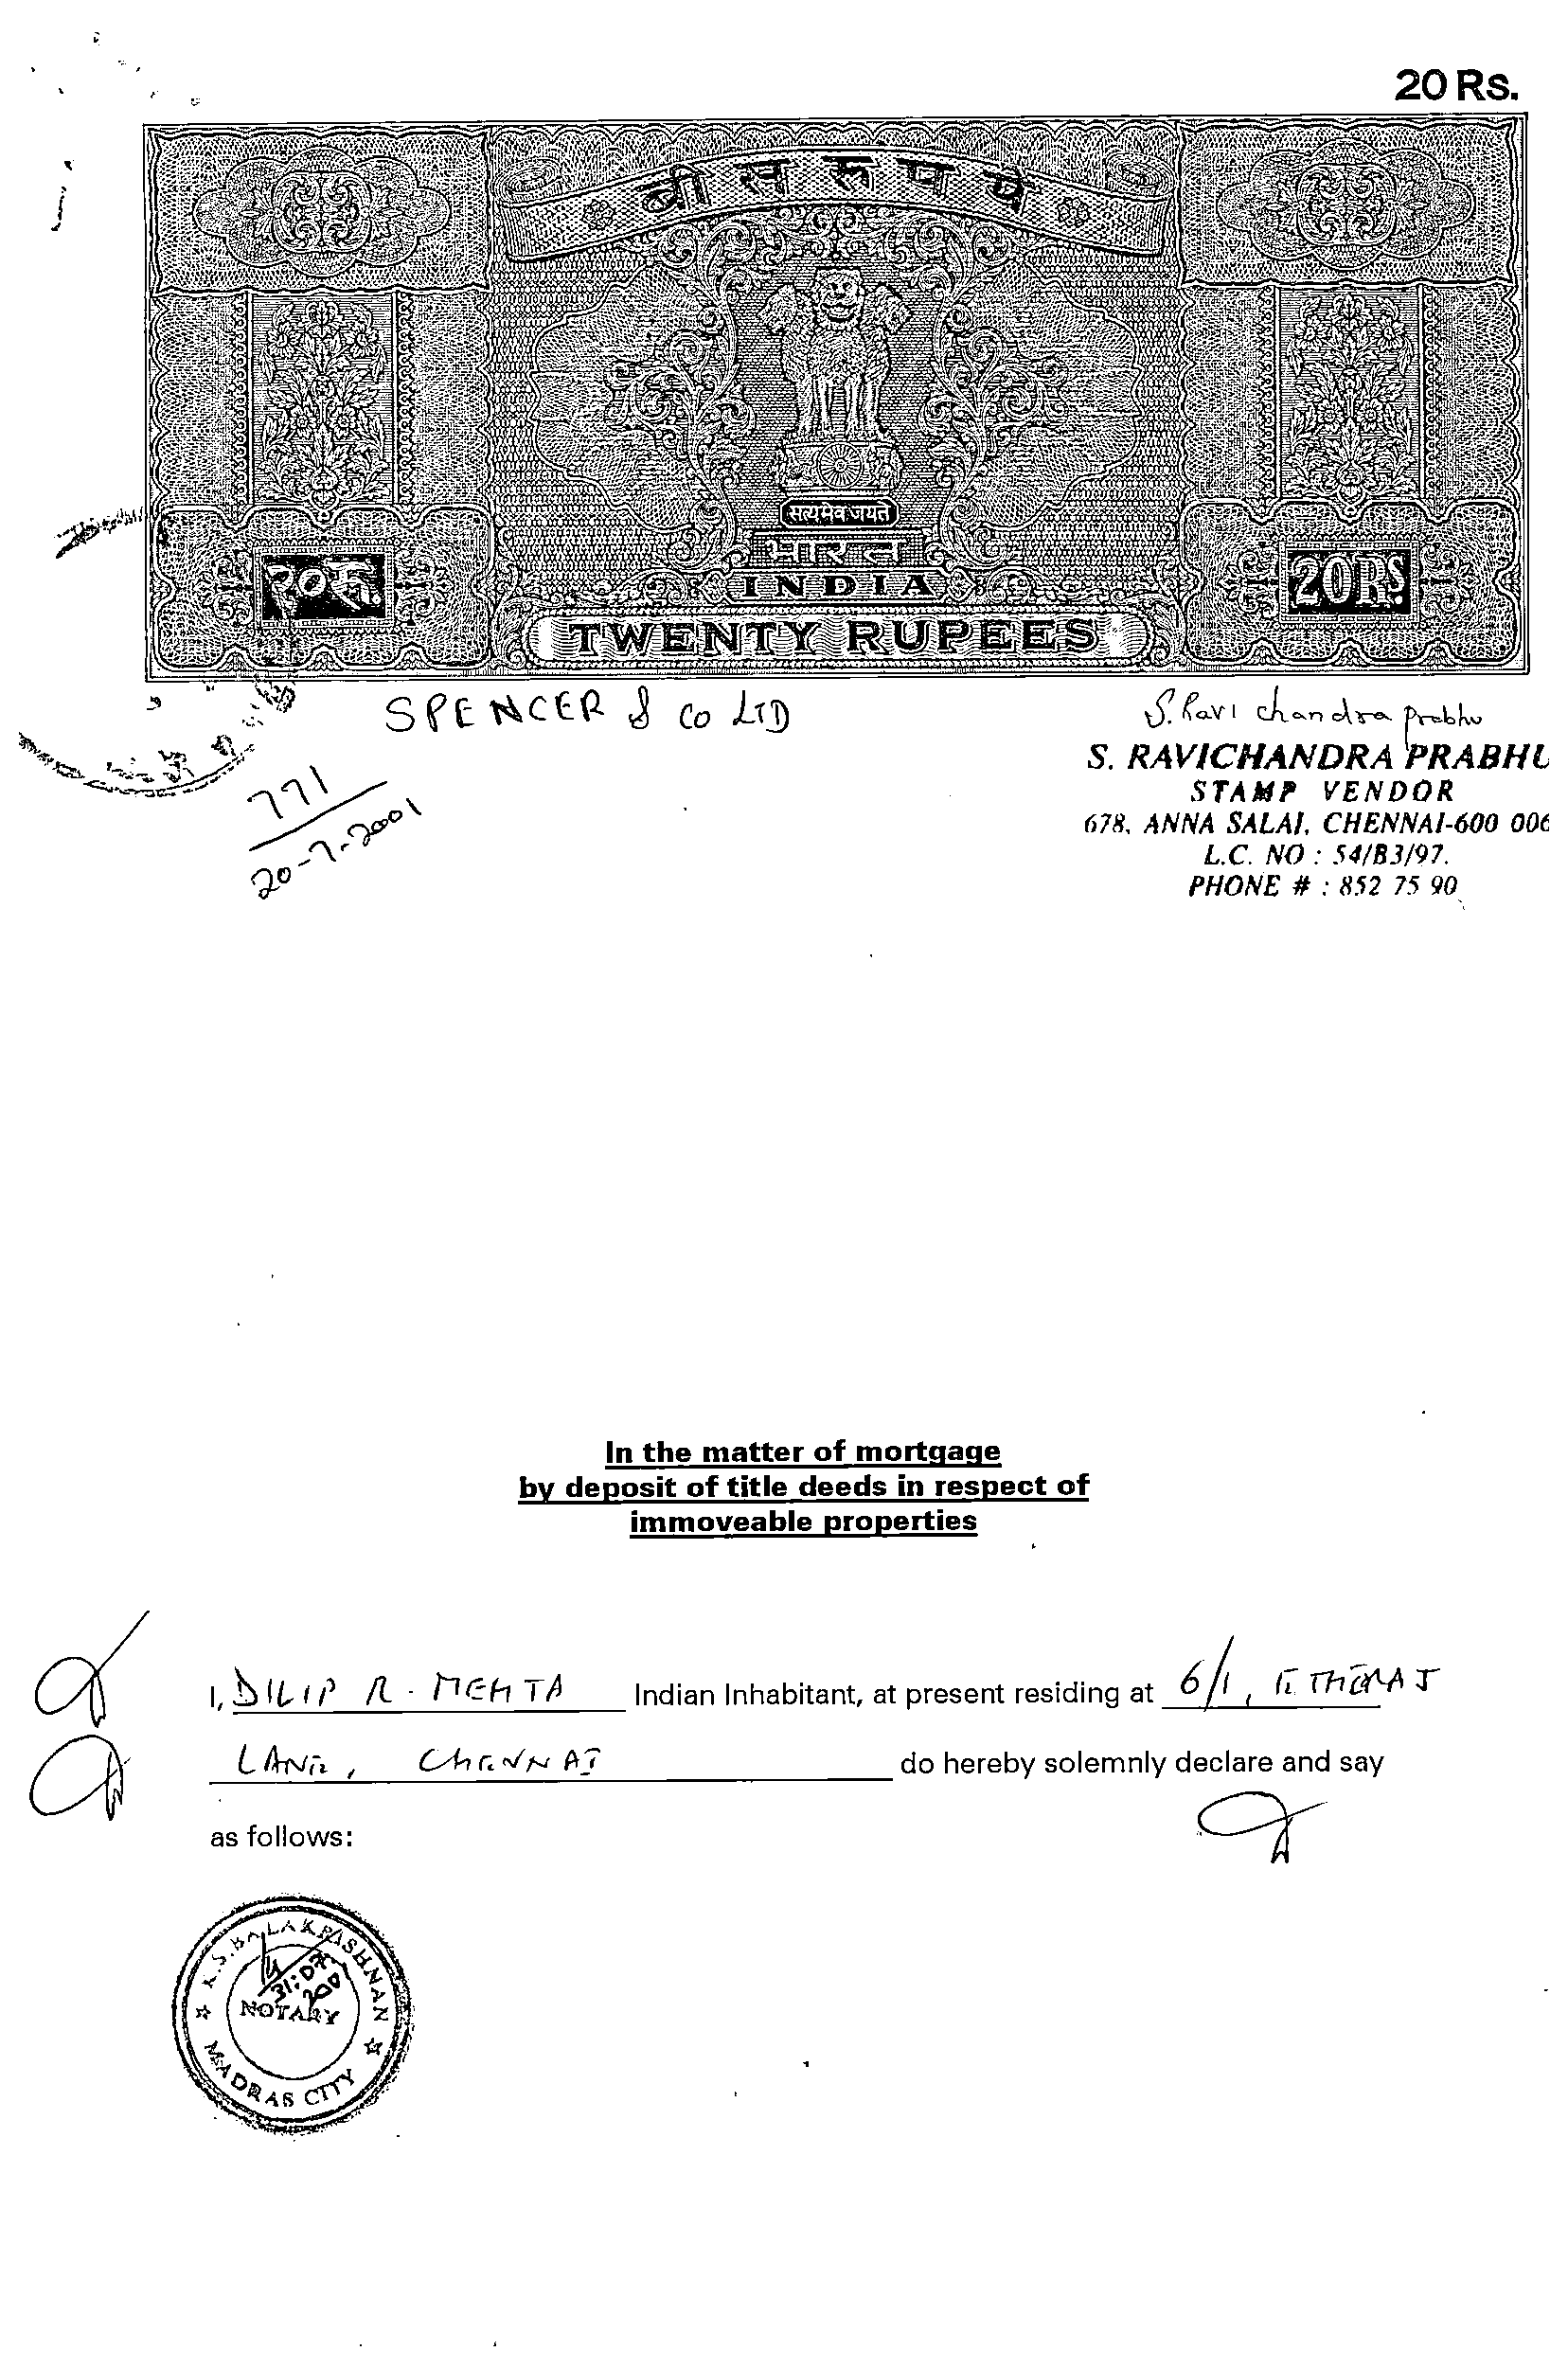 20 Rs.
बीस रूपये
सत्यमेव जयते
भारत
INDIA
२०रु. 20Rs.
TWENTY RUPEES
SPENCER & Co LTD
S. Ravi chandra prabhu
S. RAVICHANDRA PRABHU
STAMP VENDOR
678, ANNA SALAI, CHENNAI-600 006
L.C. NO : 54/B3/97.
PHONE # : 852 75 90
771
20-7-2001
In the matter of mortgage
by deposit of title deeds in respect of
immoveable properties
I, DILIP R. MEHTA Indian Inhabitant, at present residing at 6/1, ETHIRAJ
LANE, CHENNAI do hereby solemnly declare and say
as follows:
K.S. BALAKRISHNAN
NOTARY
MADRAS CITY